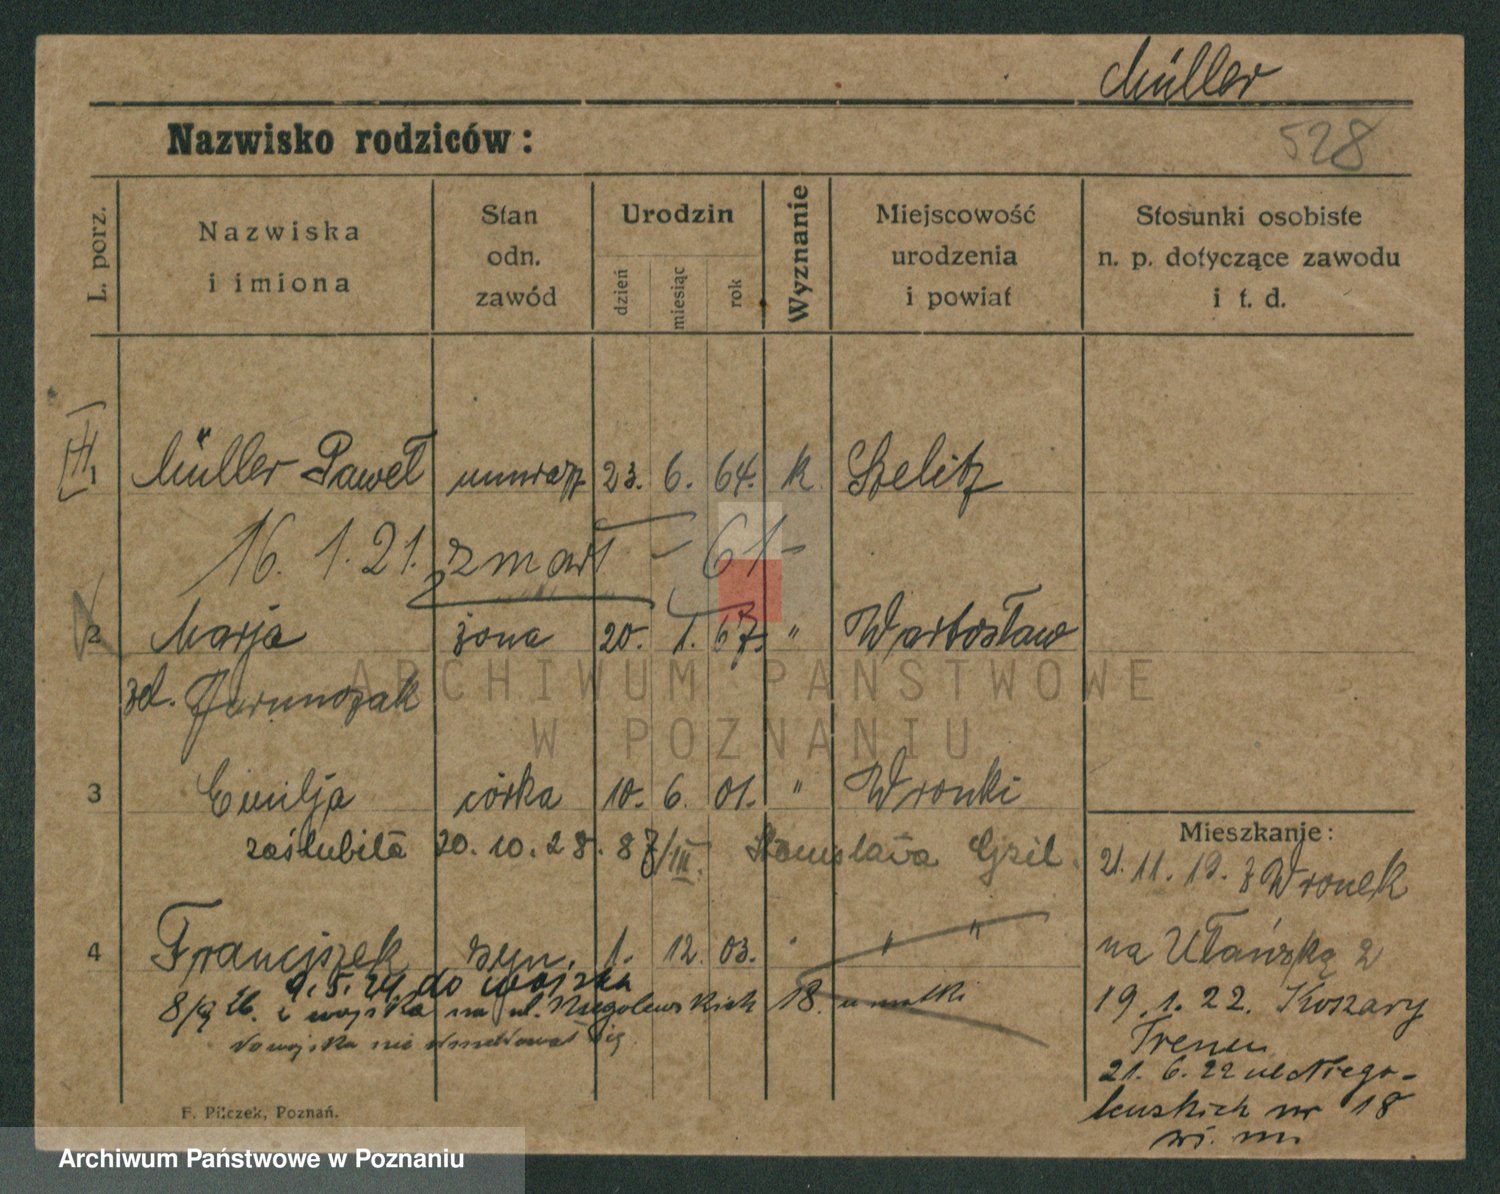 Müller
Nazwisko rodziców:
528
L. porz.
Nazwiska
i imiona
Stan
odn.
zawód
Urodzin
dzień
miesiąc
rok
Wyznanie
Miejscowość
urodzenia
i powiat
Stosunki osobiste
n. p. dotyczące zawodu
i t. d.
1 Müller Paweł 23. 6. 64. k. Stelitz
16. 1. 21. zmarł - 61 -
2 Marja żona 20. 1. 67. " Wartosław
3 Emilja córka 10. 6. 01. " Wronki
zaślubiła 20. 10. 28. 87/III. Stanisława Gzil.
4 Franciszek syn. 1. 12. 03. " " "
9. 5. 24 do wojska
z wojska na ul. Niegolewskich 18. u matki
do wojska nie się
Mieszkanie:
21. 11. 19. z Wronek
na Ułańską 2
19. 1. 22. Koszary
Trenu
21. 6. 22 ul Niego-
lewskich nr 18
F. Pilczek, Poznań.
ARCHIWUM PAŃSTWOWE
W POZNANIU
Archiwum Państwowe w Poznaniu